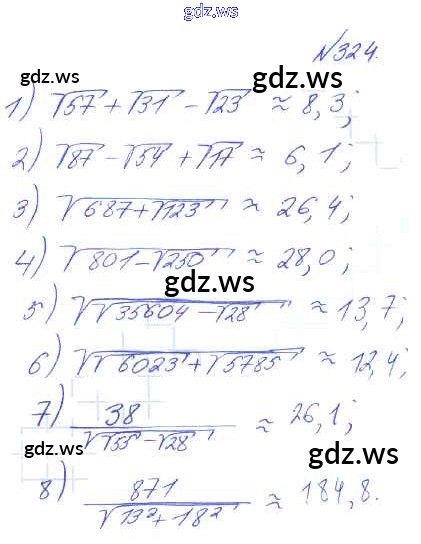 gdz.ws
№324.
gdz.ws
gdz.ws
1) √57 + √31 - √23 ≈ 8,3;
2) √87 - √54 + √17 ≈ 6,1;
gdz.ws
3) √(687 + √123) ≈ 26,4;
4) √(801 - √250) ≈ 28,0;
gdz.ws
5) √(√35604 - √28) ≈ 13,7;
6) √(√6023 + √5785) ≈ 12,4;
gdz.ws
7) 38 / √(√55 - √28) ≈ 26,1;
gdz.ws
8) 871 / √(13² + 18²) ≈ 184,8.
gdz.ws